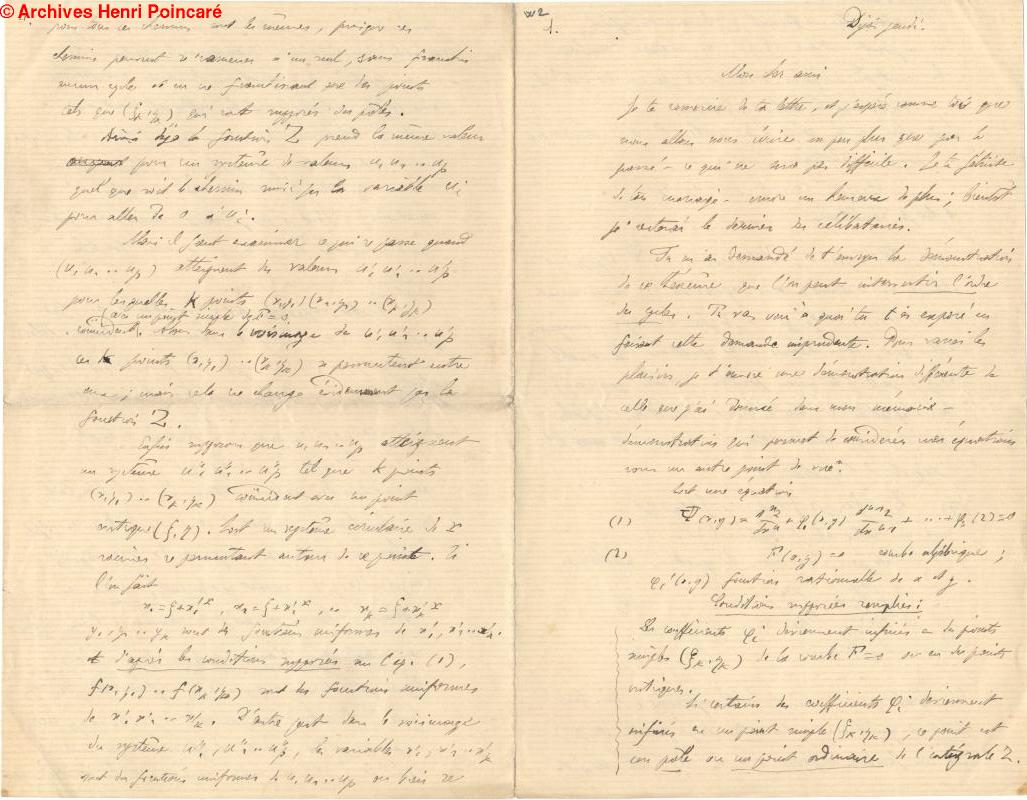 © Archives Henri Poincaré
pour tous ces chemins sont les mêmes, puisque ces
chemins peuvent se ramener à un seul, sans franchir
aucun cycle et en ne franchissant que des points
tels que (ξk, ηk) qui sont supposés des pôles.
Ainsi déjà la fonction Z prend la même valeur
pour un système de valeurs u1 u2 .. up
quel que soit le chemin suivi par la variable ui
pour aller de 0 à ui.
Mais il faut examiner ce qui se passe quand
(u1 u2 .. up) atteignent des valeurs u'1 u'2 .. u'p
pour lesquelles k points (x1 y1) (x2, y2) .. (xk yk)
(en un point simple de F = 0)
coïncident. Alors dans le voisinage de u'1 u'2 .. u'p
ces k points (x1 y1) .. (xk yk) se permutent entre
eux ; mais cela ne change évidemment pas la
fonction Z.
Enfin supposons que u1 u2 .. up atteignent
un système u"1 u"2 .. u"p tel que k points
(x1 y1) .. (xk, yk) coïncident avec un point
critique (ξ, η). Soit un système circulaire de
racines se permutant autour de ce point. Si
l'on fait
x1 = ξ + x'1^k, x2 = ξ + x'2^k, .. xk = ξ + x'k^k
y1, y2 .. yk sont des fonctions uniformes de x'1, x'2 .. x'k.
et d'après les conditions supposées sur l'éq. (1),
f(x1 y1) .. f(xk, yk) sont des fonctions uniformes
de x'1 x'2 .. x'k. D'autre part dans le voisinage
du système u"1, u"2 .. u"p, les variables x'1, x'2 .. x'k
sont des fonctions uniformes de u1 u2 .. up ou bien se
1.
Dijon jeudi.
Mon cher ami
Je te remercie de ta lettre, et j'espère comme toi que
nous allons nous écrire un peu plus que par le
passé – ce qui ne sera pas difficile. Je te félicite
de ton mariage – encore un heureux de plus ; bientôt
je resterai le dernier des célibataires.
Tu m'as demandé de t'envoyer la démonstration
de ce théorème que l'on peut intervertir l'ordre
des cycles. Tu vas voir à quoi tu t'es exposé en
faisant cette demande imprudente. Pour varier les
plaisirs, je t'envoie une démonstration différente de
celle que j'ai donnée dans mon mémoire –
démonstration qui permet de considérer mes équations
sous un autre point de vue.
Soit une équation
(1) Φ(x, y) = d^n z/dx^n + φ1(x, y) d^n-1 z/dx^n-1 + ... + φn(z) = 0
(2) F(x, y) = 0 courbe algébrique ;
φi(x, y) fonction rationnelle de x et y.
Conditions supposées remplies :
Les coefficients φi deviennent infinis en des points
simples (ξk, ηk) de la courbe F = 0 ou en des points
critiques.
Si certains des coefficients φi deviennent
infinis en un point simple (ξk, ηk), ce point est
un pôle ou un point ordinaire de l'intégrale Z.